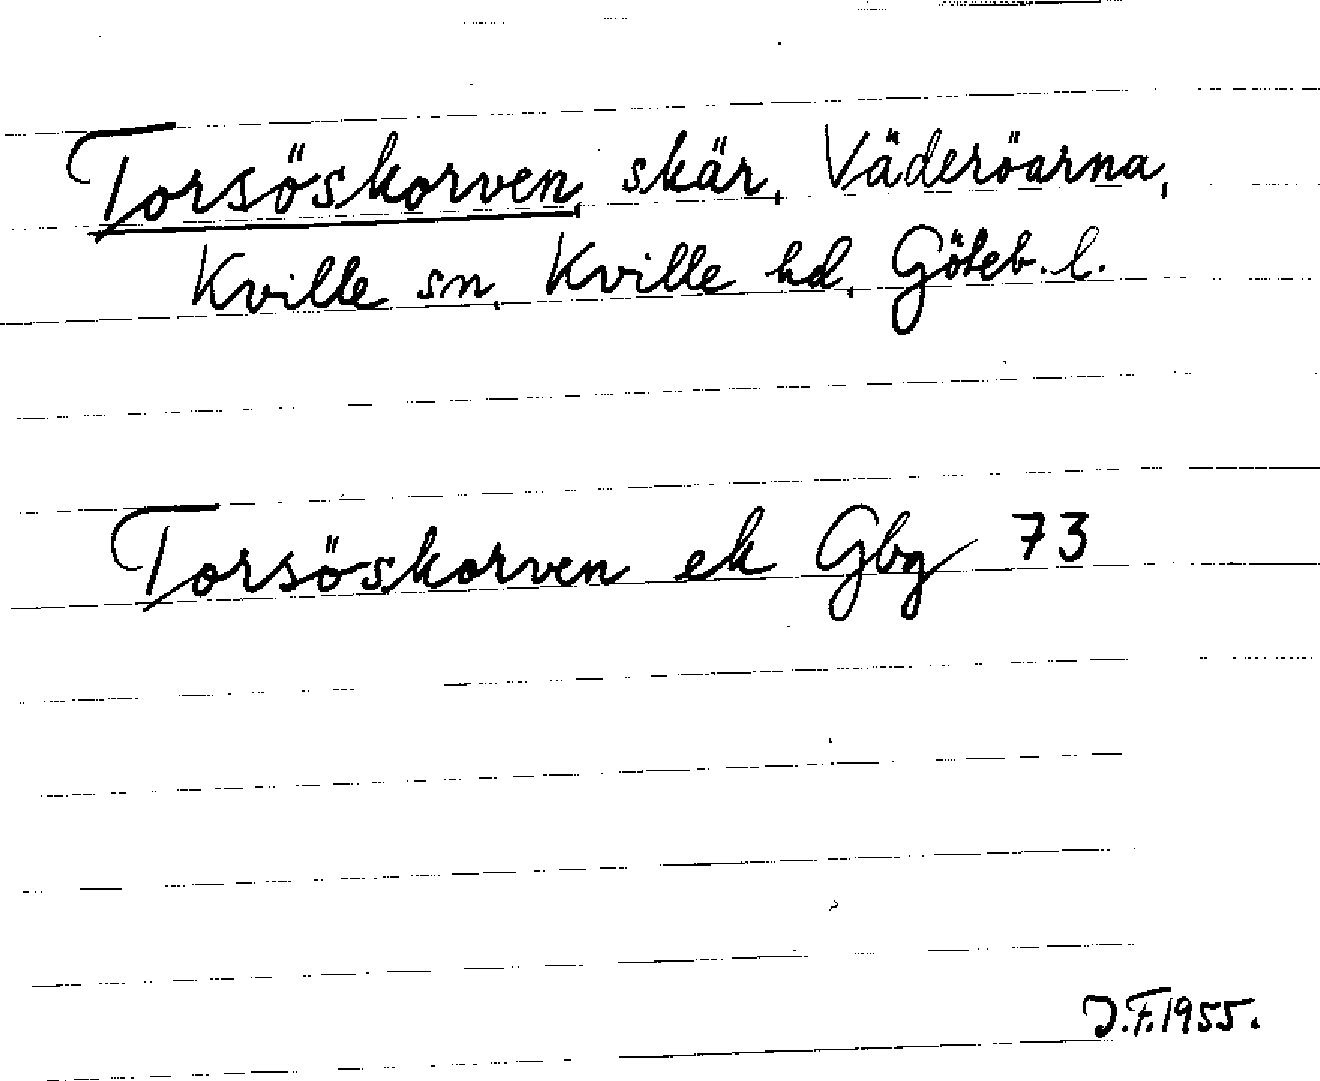 Torsöskorven, skär, Väderöarna,
Kville sn, Kville hd, Göteb. l.
Torsöskorven ek Gbg 73
J.F. 1955.